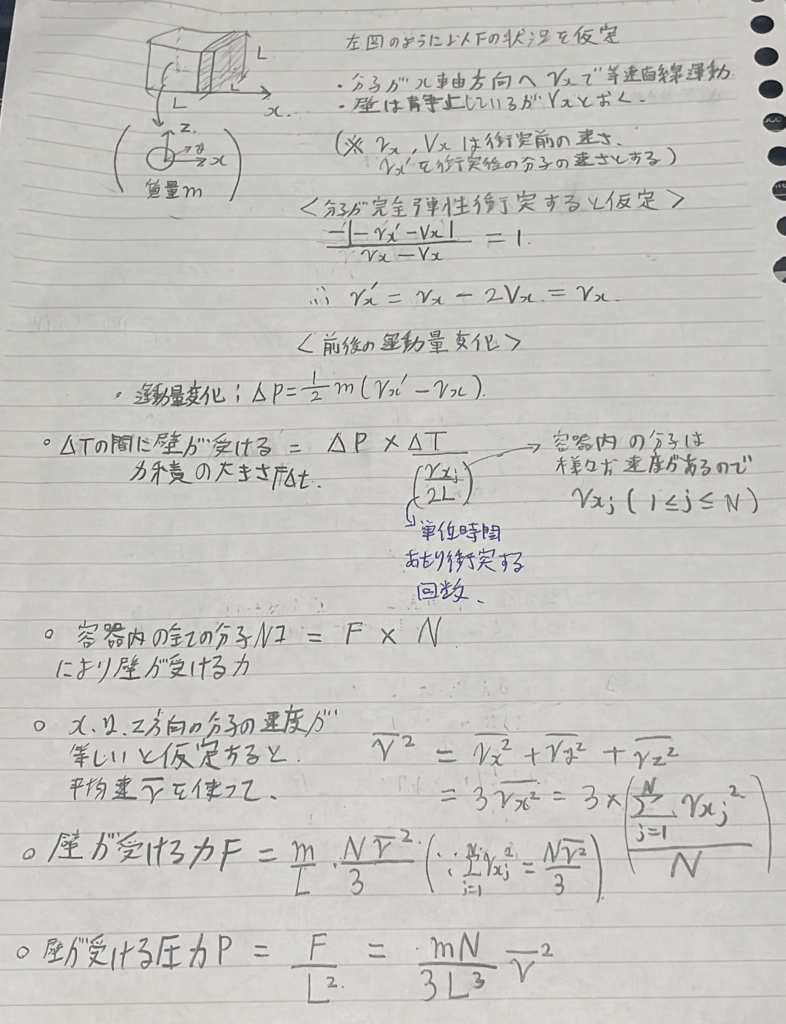 左図のように以下の状況を仮定
L
L
L
x
・分子がx軸方向へvxで等速直線運動
・壁は静止しているがVxとおく.
z
y
x
質量m
(※ vx, Vxは衝突前の速さ、
vx'を衝突後の分子の速さとする)
<分子が完全弾性衝突すると仮定>
-|-vx'-Vx| / vx-Vx = 1.
∴ vx' = vx - 2Vx = vx.
<前後の運動量変化>
・運動量変化; ΔP = 1/2 m(vx' - vx).
○ ΔTの間に壁が受ける = ΔP × ΔT / (vxj/2L)
力積の大きさFΔt.
→ 容器内の分子は
様々な速度があるので
vxj (1≦j≦N)
単位時間
あたり衝突する
回数、
○ 容器内の全ての分子Nコ = F × N
により壁が受ける力
○ x,y,z方向の分子の速度が
等しいと仮定すると、
平均速v̄を使って、
v̄² = v̄x² + v̄y² + v̄z²
= 3v̄x² = 3×(Σ_{j=1}^{N} vxj² / N)
○ 壁が受ける力F = m/L · Nv̄²/3 (∵ Σ_{j=1}^{N} vxj² = Nv̄²/3)
○ 壁が受ける圧力P = F/L² = mN/3L³ v̄²